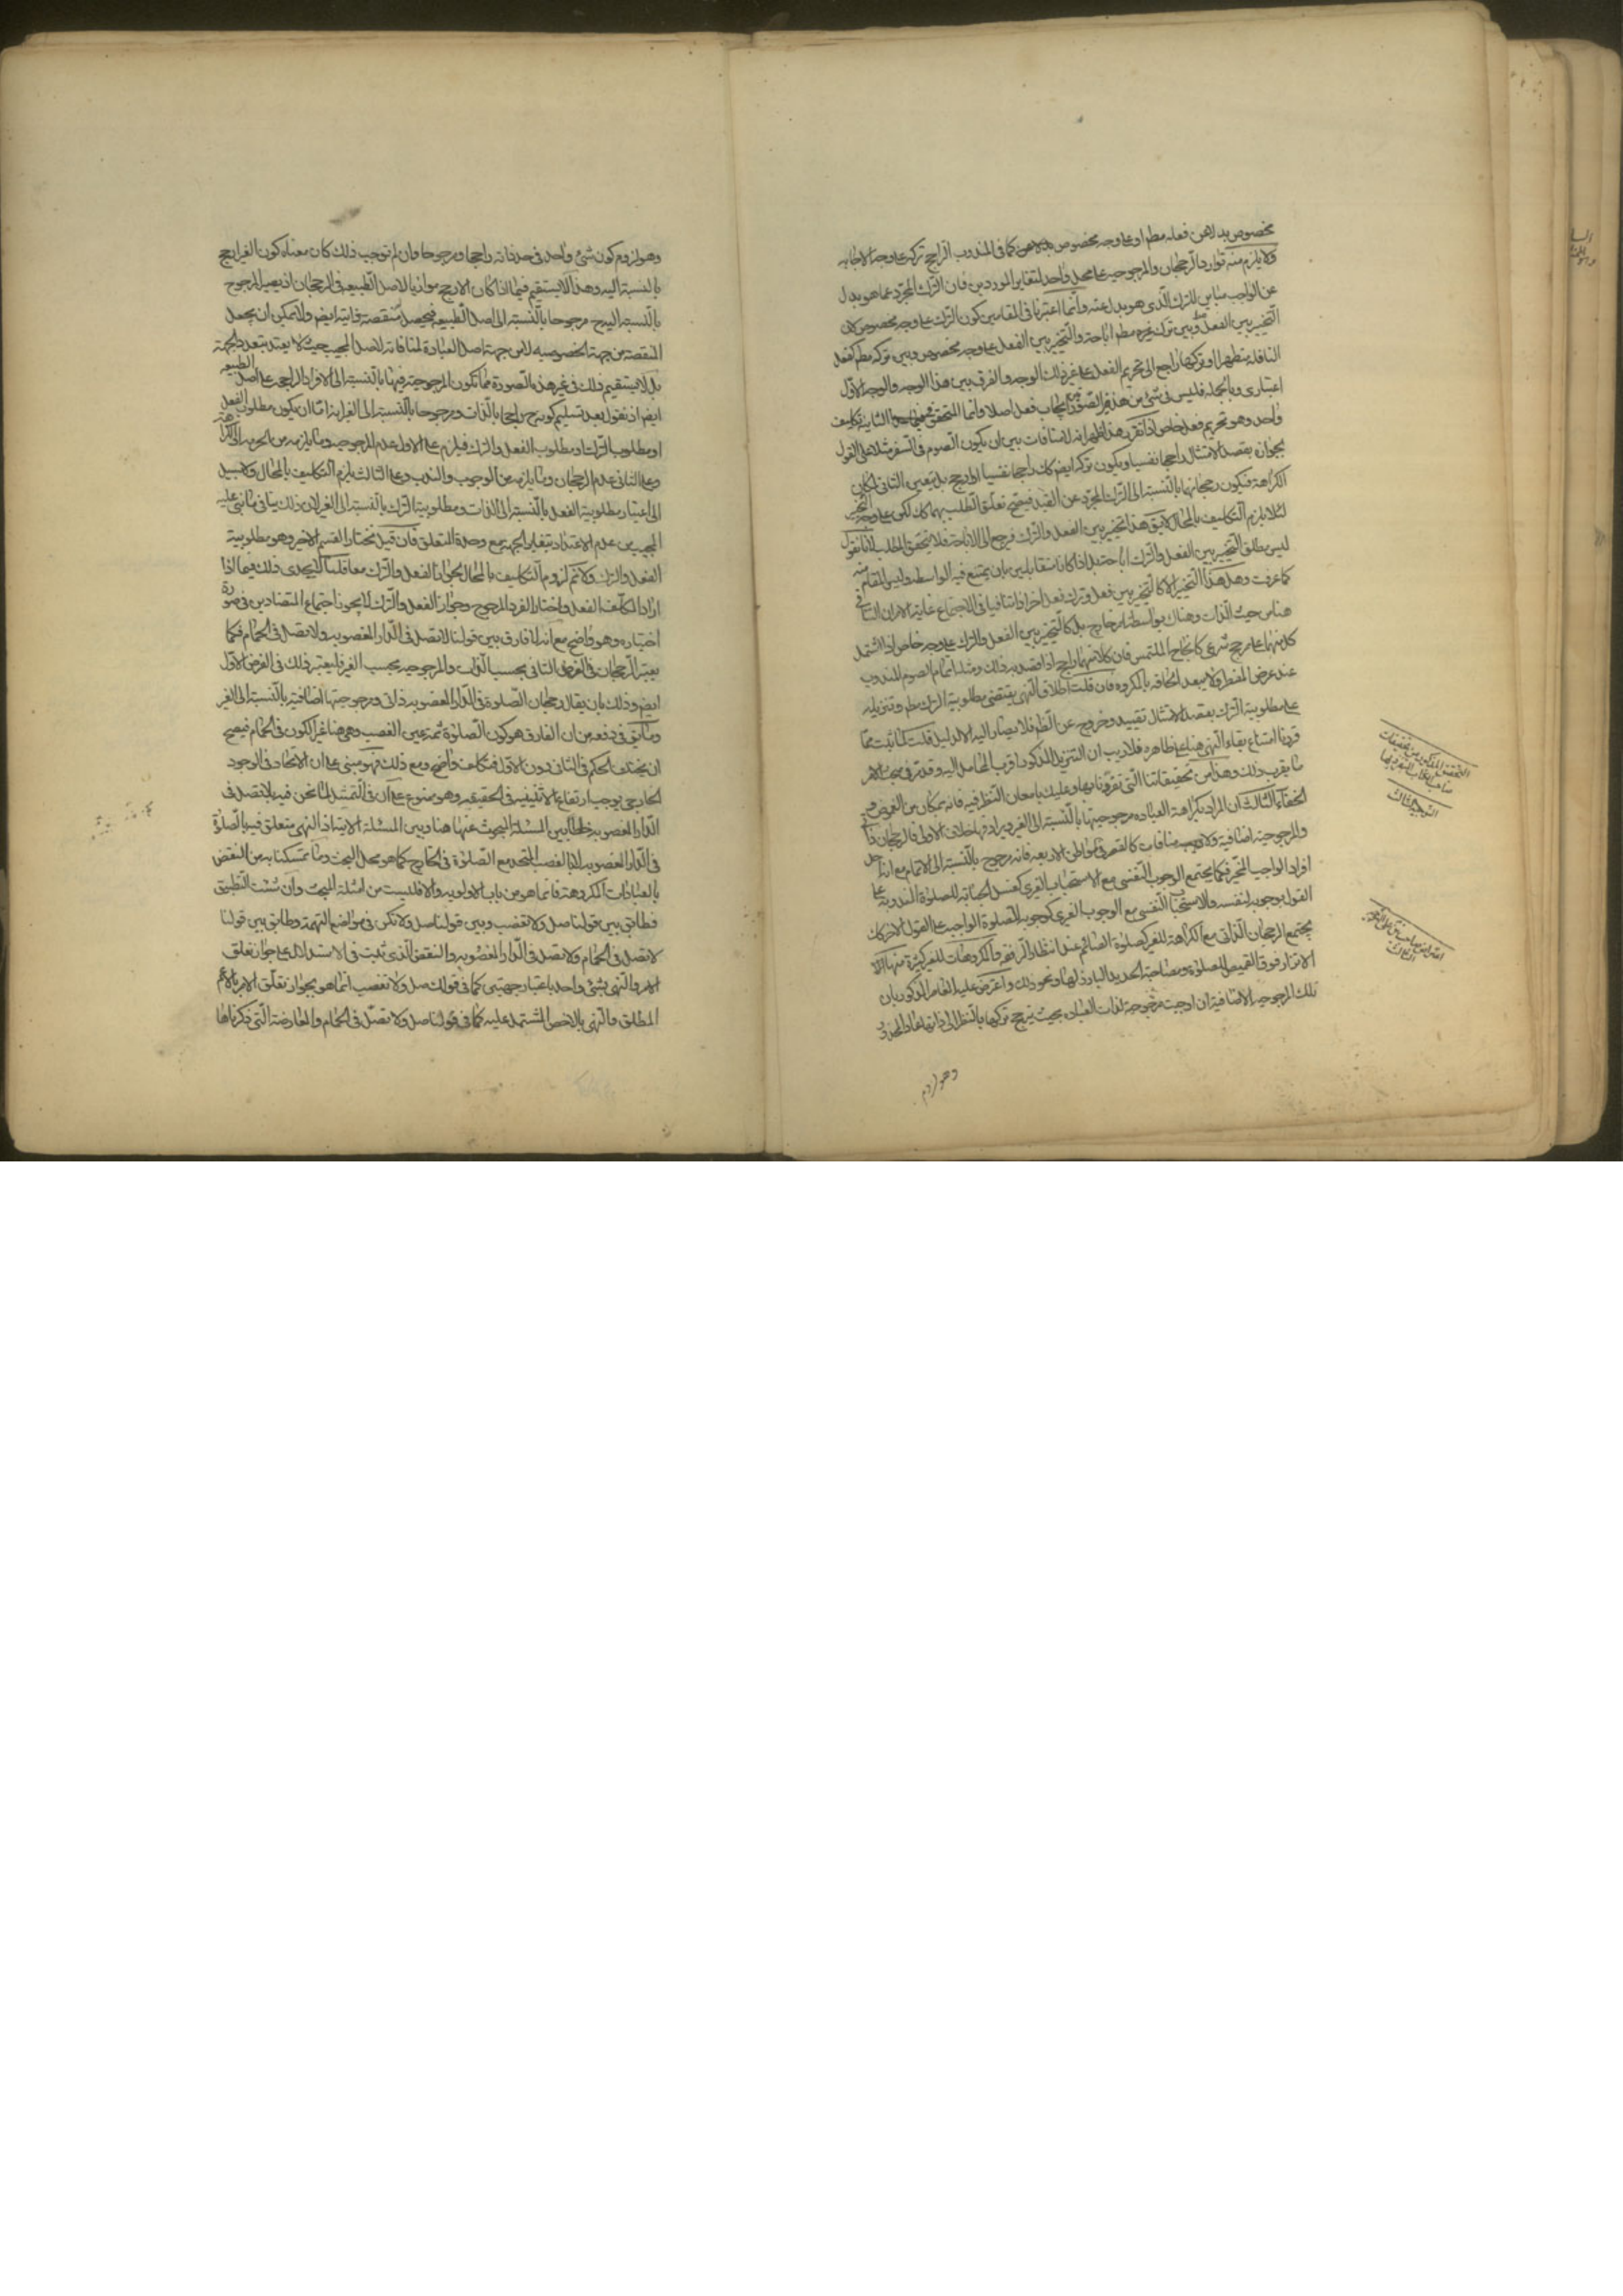 مخصوص بدلا عن فعله مطم او على وجه مخصوص كما في المندوب الراجح تركه على وجه الاجابه
ولا يلزم منه توارد الرجحان والمرجوحية على محل واحد لتغاير الموردين فان الترك المجرد عما هو بدل
عن الواجب مباين للترك الذي هو بدل عنه وانما اعتبرنا في المقامين كون الترك على وجه مخصوص لان
التخيير بين الفعل وبين ترك غيره مطم اباحة والتخيير بين الفعل على وجه مخصوص وبين تركه مطم كفعل
النافلة متطهرا او تركها راجع الى تحريم الفعل على غير ذلك الوجه والفرق بين هذا الوجه والوجه الاول
اعتباري وبالجملة فليس في شئ من هذه الصور ايجاب فعل اصلا وانما المتحقق الثانية تكليف
واحد وهو تحريم فعل خاص اذا تقرر هذا ظهر انه لا منافات بين ان يكون الصوم في السفر مثلا على القول
بجوازه بقصد الامتثال راجحا نفسيا ويكون تركه ايضم كك راجحا نفسيا او ارجح بل يتعين الثاني لمكان
الكراهة فيكون رجحانهما بالنسبة الى الترك المجرد عن القيد فيصح تعلق الطلب بهما كك لكن على وجه التخيير
لئلا يلزم التكليف بالمحال لا يق هذا تخيير بين الفعل والترك فيرجع الى الاباحة فلا يتحقق الطلب لانا نقول
ليس مطلق التخيير بين الفعل والترك اباحة بل اذا كانا متقابلين بان يمتنع فيه الواسطه وليس المقام منه
كما عرفت وهل هذا التخيير الا كالتخيير بين فعل وترك فعل اخر اذا تنافيا في الاجتماع غاية الامر ان التنافي
هنا من حيث الذات وهناك بواسطة امر خارج بل كالتخيير بين الفعل والترك على وجه خاص اذا اشتمل
كل منهما على مرجح شرعي كانجاح الملتمس فان كلا منهما راجح اذا قصد به ذلك ومثله اتمام الصوم المندوب
عند عرض المفطر ولا يبعد الحاقه بالمكروه فان قلت اطلاق النهي يقتضي مطلوبية الترك مطم وتنزيله
على مطلوبية الترك بقصد الامتثال تقييد وخروج عن الظم فلا يصار اليه الا لدليل قلت لما ثبت مما
قررنا امتناع بقاء النهي هنا على ظاهره فلا ريب ان التنزيل المذكور اقرب المحامل اليه وقد مر في مبحث الامر
ما يقرب ذلك وهذا من تحقيقاتنا التي تفردنا بها وعليك بامعان النظر فيه فانه بمكان من الغموض و
الخفاء الثالث ان المراد بكراهة العباده مرجوحيتها بالنسبة الى الغير ويرادفها خلاف الاولى فالرجحان ذاتي
والمرجوحية اضافية ولا منافات كالقصر في المواطن الاربعه فانه مرجوح بالنسبة الى الاتمام مع انه احد
افراد الواجب المخير فكما يجتمع الوجوب النفسي مع الاستحباب الغيري كغسل الجنابه للصلوة المندوبة على
القول بوجوبه لنفسه والاستحباب النفسي مع الوجوب الغيري كوجوبه للصلوة الواجبه على القول الاخر كك
يجتمع الرجحان الذاتي مع الكراهة للغير كصلوة الصائم عند انتظار الرفقه فالمكروهات للغير كثيرة منها
الاتزار فوق القميص للصلوة ومصاحبة الحديد البارز لها ونحو ذلك واعترض عليه الفاضل المذكور بان
تلك المرجوحيه الاضافية ان اوجبت مرجوحية لذات العباده بحيث يرجح تركها بالنظر الى ذاتها عاد المحذور
وهو لزوم
التحقيق المذكور من تحقيقات
صاحب الكتاب المتفرد بها
التوجيه الثالث
اعتراض صاحب على التوجيه
الثالث
وهو لزوم كون شئ واحد في حد ذاته راجحا ومرجوحا وان لم توجب ذلك كان معناه كون الغير ارجح
بالنسبة اليه وهذا لا يستقيم فيما اذا كان الارجح موازيا لاصل الطبيعه في الرجحان اذ يصير المرجوح
بالنسبة اليه مرجوحا بالنسبة الى اصل الطبيعه فيحصل منقصة ذاتية ايضم ولا يمكن ان يجعل
المنقصة من جهة الخصوصيه لا من جهة اصل العبادة لمنافاته لاصل المجيب حيث لا يعتد بتعدد الجهة
بل لا يستقيم ذلك في غير هذه الصورة مما تكون المرجوحية فيها بالنسبة الى الافراد الراجحة على اصل الطبيعه
ايضم اذ نقول بعد تسليم كونه راجحا بالذات ومرجوحا بالنسبة الى الغير انه اما ان يكون مطلوب الفعل
او مطلوب الترك او مطلوب الفعل والترك فيلزم على الاول عدم المرجوحيه وما يلزمه من الحرمة الى الكراهة
وعلى الثاني عدم الرجحان وما يلزمه من الوجوب والندب وعلى الثالث يلزم التكليف بالمحال ولا سبيل
الى اعتبار مطلوبية الفعل بالنسبة الى الذات ومطلوبية الترك بالنسبة الى الغير لان ذلك ينافي ما بنى عليه
المجيب من عدم الاعتداد بتغاير الجهة مع وحدة المتعلق فان قيل نختار القسم الاخير وهو مطلوبية
الفعل والترك ولا ثم لزوم التكليف بالمحال لجواز الفعل والترك معا قلنا لا يجدى ذلك فيما اذا
اراد المكلف الفعل واختار الفرد المرجوح وجواز الفعل والترك لا يجوز اجتماع المتضادين في صورة
اختياره وهو واضح مع انه لا فارق بين قولنا لا تصل في الدار المغصوبه ولا تصل في الحمام فكما
يعتبر الرجحان في الفرض الثاني بحسب الذات والمرجوحيه بحسب الغير فليعتبر ذلك في الفرض الاول
ايضم وذلك بان يقال رجحان الصلوة في الدار المغصوبه ذاتي ومرجوحيتها اضافية بالنسبة الى الغير
وما يق في دفعه من ان الفارق هو كون الصلوة ثمة عين الغصب وهي هنا غير الكون في الحمام فيصح
ان يختلف الحكم في الثاني دون الاول فتكلف واضح ومع ذلك فهو مبنى على ان الاتحاد في الوجود
الخارجي يوجب ارتفاع الاثنينية في الحقيقه وهو ممنوع على ان في التمثيل لما نحن فيه بلا تصل في
الدار المغصوبه خلطا بين المسئلة المبحوث عنها هنا وبين المسئلة الاتية اذ النهي متعلق فيه بالصلوة
في الدار المغصوبه لا بالغصب المتحد مع الصلوة في الخارج كما هو محل البحث وما تمسكنا به من النقض
بالعبادات المكروهة فانما هو من باب الاولويه والا فليست من امثلة المبحث وان شئت التطبيق
فطابق بين قولنا صل ولا تغصب وبين قولنا صل ولا تكن في مواضع التهمة وطابق بين قولنا
لا تصل في الحمام ولا تصل في الدار المغصوبه والنقض الذي يثبت في الاستدلال على جواز تعلق
الامر والنهي بشئ واحد باعتبار جهتين كما في قولك صل ولا تغصب انما هو بجواز تعلق الامر بالاعم
المطلق والنهي بالاخص المشتمل عليه كما في قولنا صل ولا تصل في الحمام والمعارضة التي ذكرناها